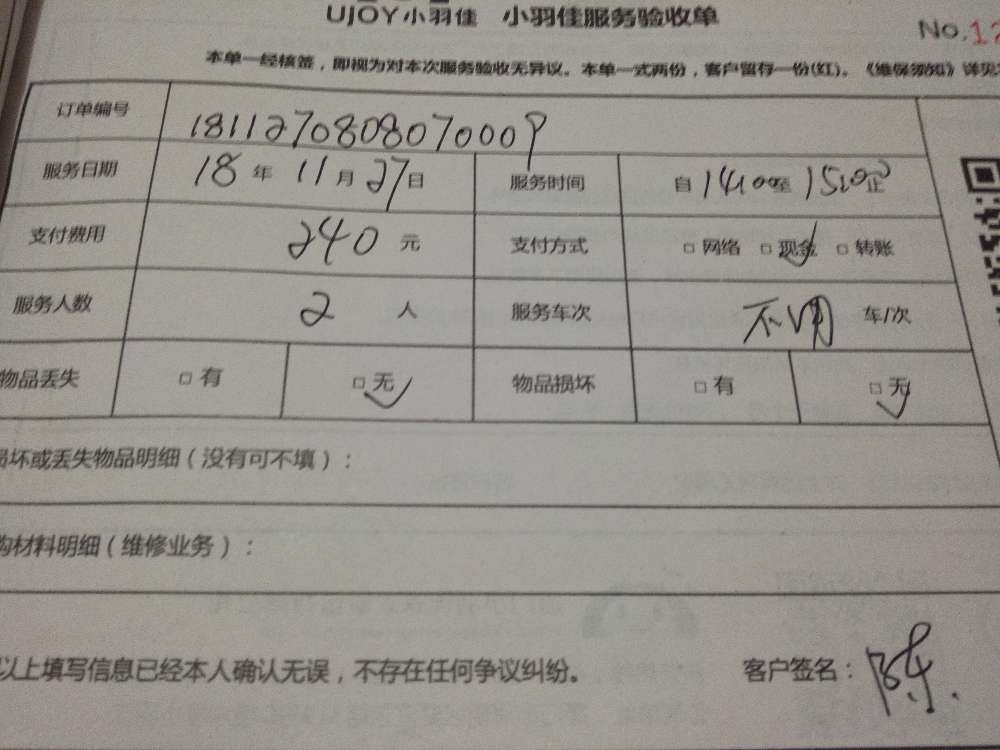 UJOY小羽佳 小羽佳服务验收单
No.12
本单一经核签，即视为对本次服务验收无异议。本单一式两份，客户留存一份(红)。《维保须知》详见
订单编号 1811270808070009
服务日期 18 年 11 月 27 日 服务时间 自 14:00 至 15:00 止
支付费用 240 元 支付方式 □ 网络 □ 现金 □ 转账
服务人数 2 人 服务车次 不用 车/次
物品丢失 □ 有 □ 无 物品损坏 □ 有 □ 无
损坏或丢失物品明细（没有可不填）：
购材料明细（维修业务）：
以上填写信息已经本人确认无误，不存在任何争议纠纷。 客户签名：陈